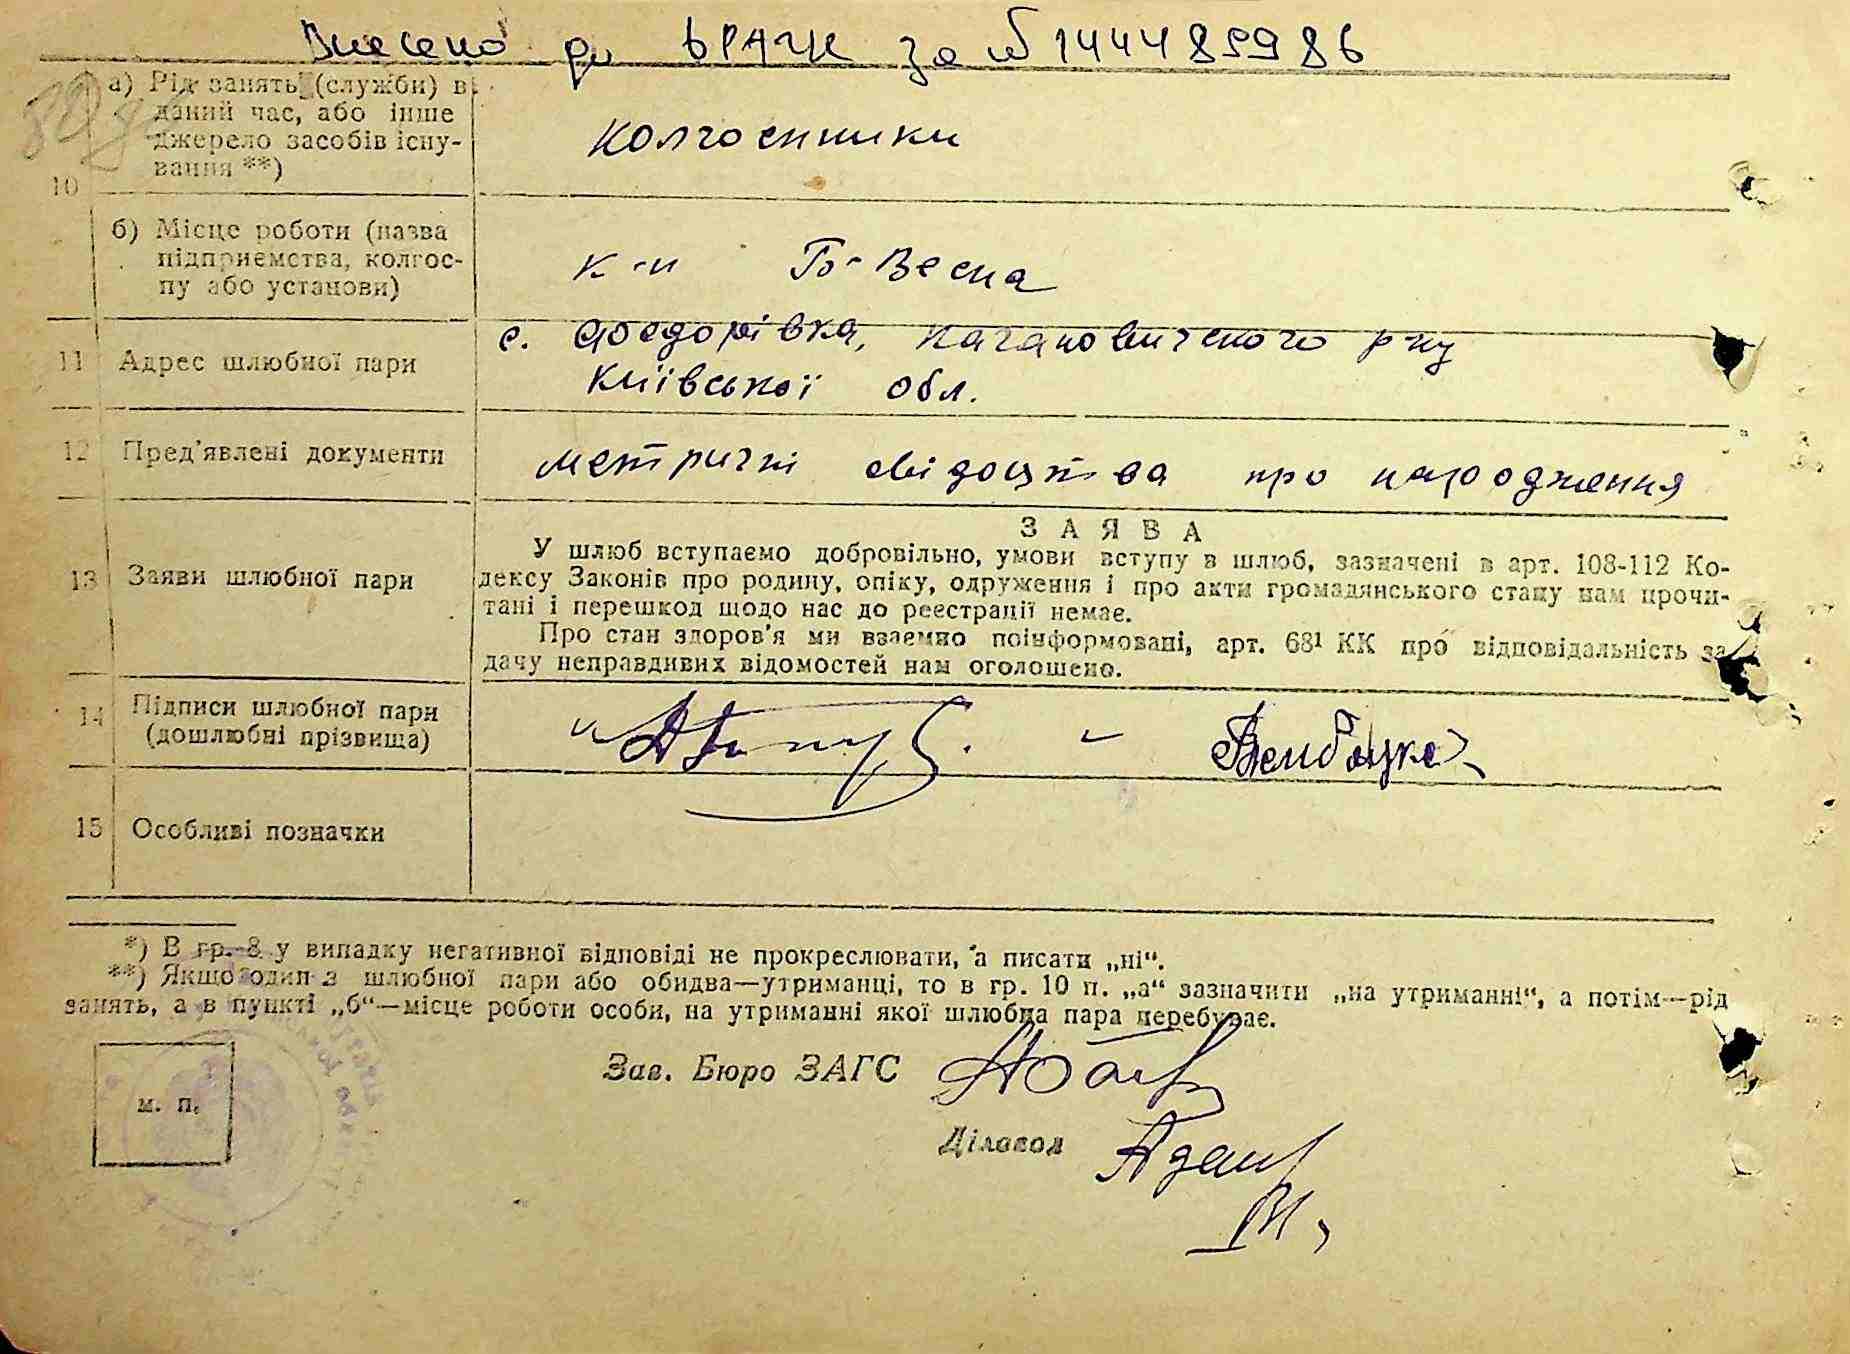 Внесено до ДРАЦС за № 14444859986
а) Рід занять (служби) в
даний час, або інше
джерело засобів існу-
вання **)
10
колгоспники
б) Місце роботи (назва
підприємства, колгос-
пу або установи)
к-п Весна
11 Адрес шлюбної пари
с. Федорівка, Кагановичского р-ну
Київської обл.
12 Пред'явлені документи
метричні свідоцтва про народження
З А Я В А
13 Заяви шлюбної пари
У шлюб вступаємо добровільно, умови вступу в шлюб, зазначені в арт. 108-112 Ко-
дексу Законів про родину, опіку, одруження і про акти громадянського стану нам прочи-
тані і перешкод щодо нас до реєстрації немає.
Про стан здоров'я ми взаємно поінформовані, арт. 68¹ КК про відповідальність за
дачу неправдивих відомостей нам оголошено.
14 Підписи шлюбної пари
(дошлюбні прізвища)
15 Особливі позначки
*) В гр. 8 у випадку негативної відповіді не прокреслювати, а писати „ні“.
**) Якщо один з шлюбної пари або обидва—утриманці, то в гр. 10 п. „а“ зазначити „на утриманні“, а потім—рід
занять, а в пункті „б“—місце роботи особи, на утриманні якої шлюбна пара перебуває.
Зав. Бюро ЗАГС
м. п.
Діловод